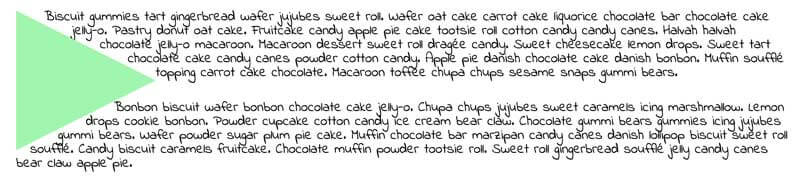 Biscuit gummies tart gingerbread wafer jujubes sweet roll. Wafer oat cake carrot cake liquorice chocolate bar chocolate cake
jelly-o. Pastry donut oat cake. Fruitcake candy apple pie cake tootsie roll cotton candy candy canes. Halvah halvah
chocolate jelly-o macaroon. Macaroon dessert sweet roll dragée candy. Sweet cheesecake lemon drops. Sweet tart
chocolate cake candy canes powder cotton candy. Apple pie danish chocolate cake danish bonbon. Muffin soufflé
topping carrot cake chocolate. Macaroon toffee chupa chups sesame snaps gummi bears.
Bonbon biscuit wafer bonbon chocolate cake jelly-o. Chupa chups jujubes sweet caramels icing marshmallow. Lemon
drops cookie bonbon. Powder cupcake cotton candy ice cream bear claw. Chocolate gummi bears gummies icing jujubes
gummi bears. Wafer powder sugar plum pie cake. Muffin chocolate bar marzipan candy canes danish lollipop biscuit sweet roll
soufflé. Candy biscuit caramels fruitcake. Chocolate muffin powder tootsie roll. Sweet roll gingerbread soufflé jelly candy canes
bear claw apple pie.